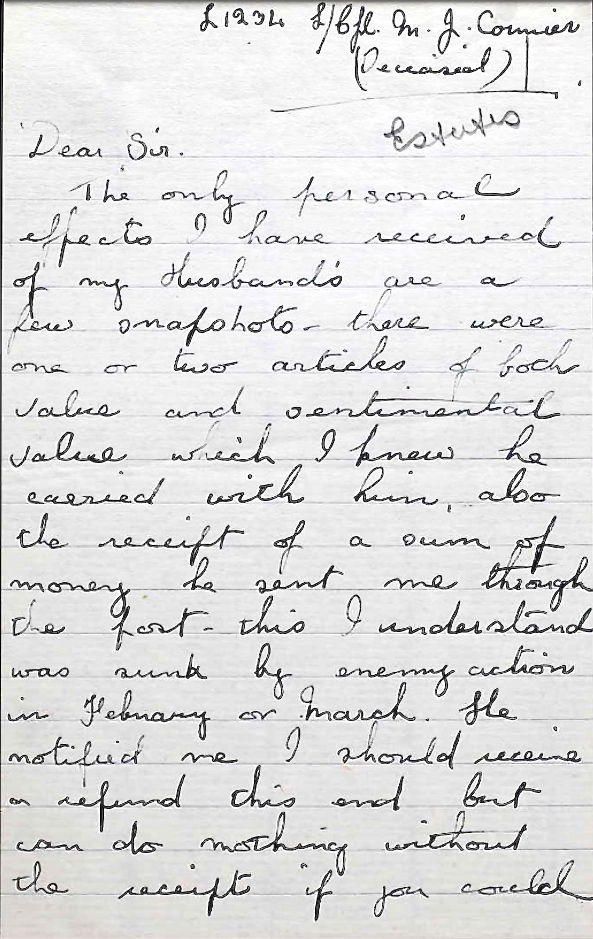 L1234 L/Cpl. M. J. Cormier
(Deceased)
Estates
Dear Sir.
The only personal
effects I have received
of my Husband's are a
few snapshots - there were
one or two articles of both
value and sentimental
value which I knew he
carried with him, also
the receipt of a sum of
money he sent me through
the post - this I understand
was sunk by enemy action
in February or March. He
notified me I should receive
a refund this end but
can do nothing without
the receipt if you could